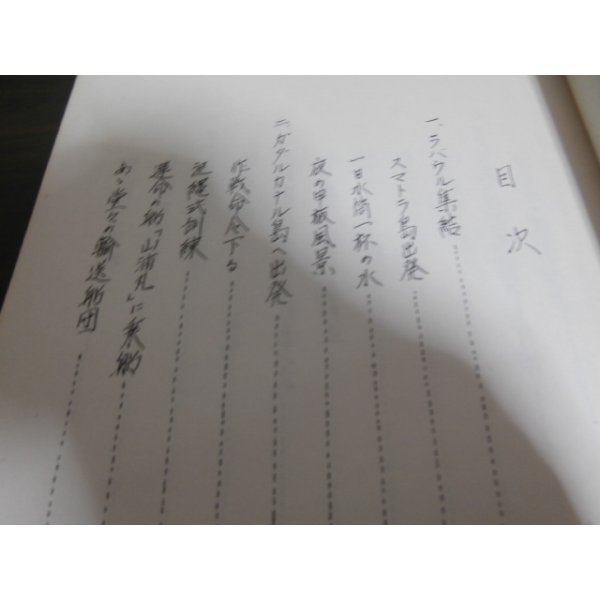 目次
一、ラバウル集結
スマトラ島出発
一日水筒一杯の水
夜の甲板風景
二、ガダルカナル島へ出発
作戦命令下る
逆隄式訓練
運命の船「山浦丸」に乗船
あゝ堂々の輸送船団